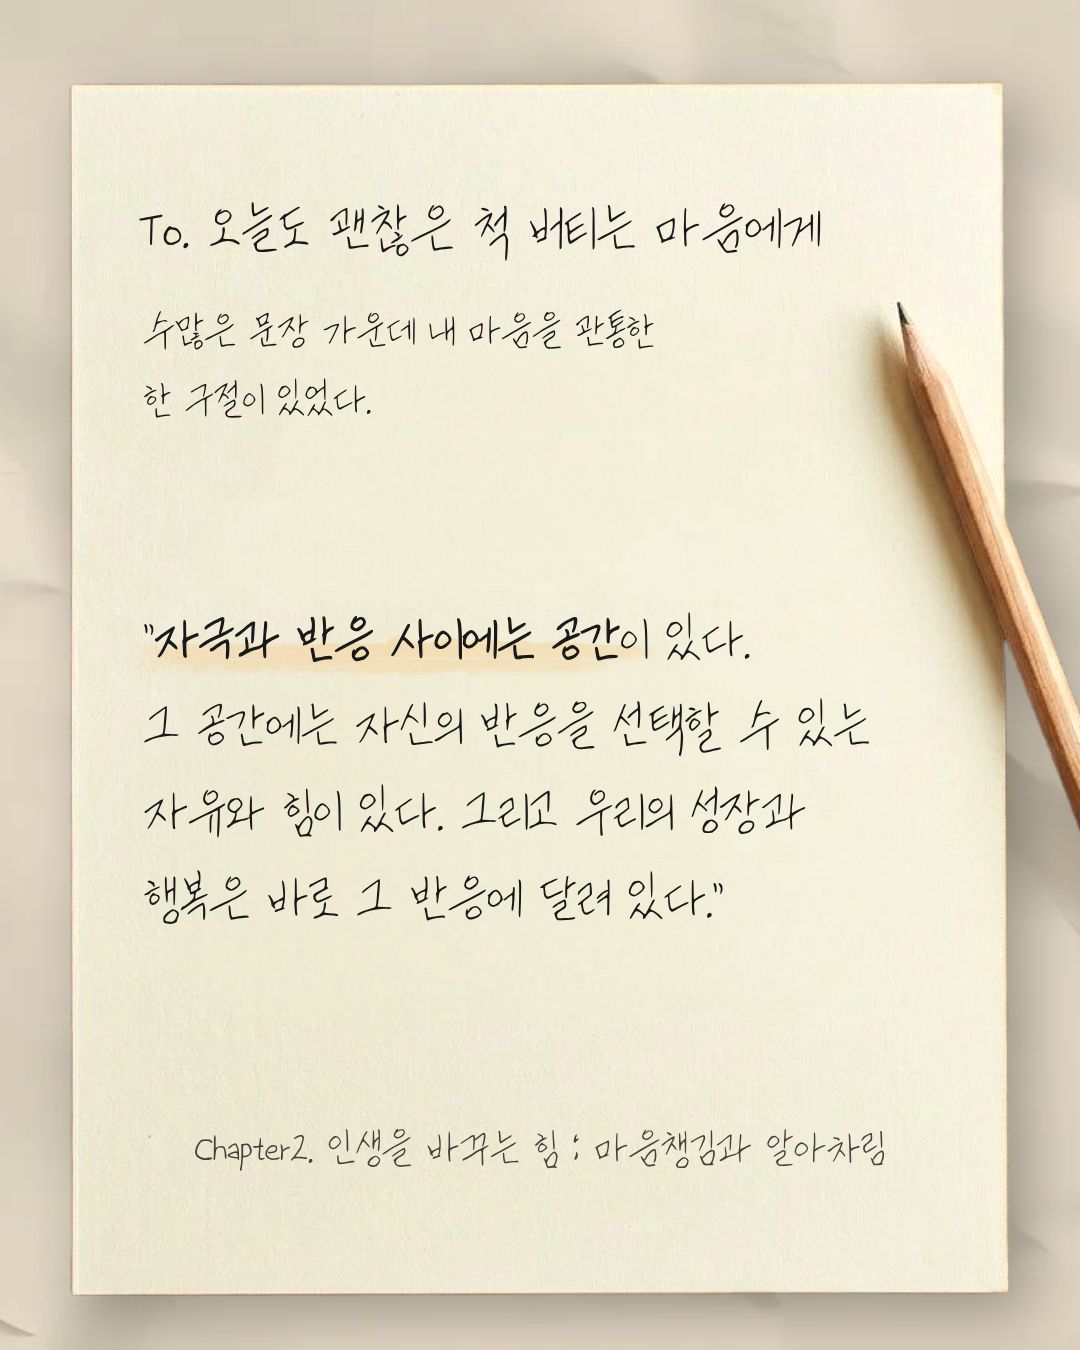 To. 오늘도 괜찮은 척 버티는 마음에게
수많은 문장 가운데 내 마음을 관통한
한 구절이 있었다.
"자극과 반응 사이에는 공간이 있다.
그 공간에는 자신의 반응을 선택할 수 있는
자유와 힘이 있다. 그리고 우리의 성장과
행복은 바로 그 반응에 달려 있다."
Chapter2. 인생을 바꾸는 힘 ; 마음챙김과 알아차림